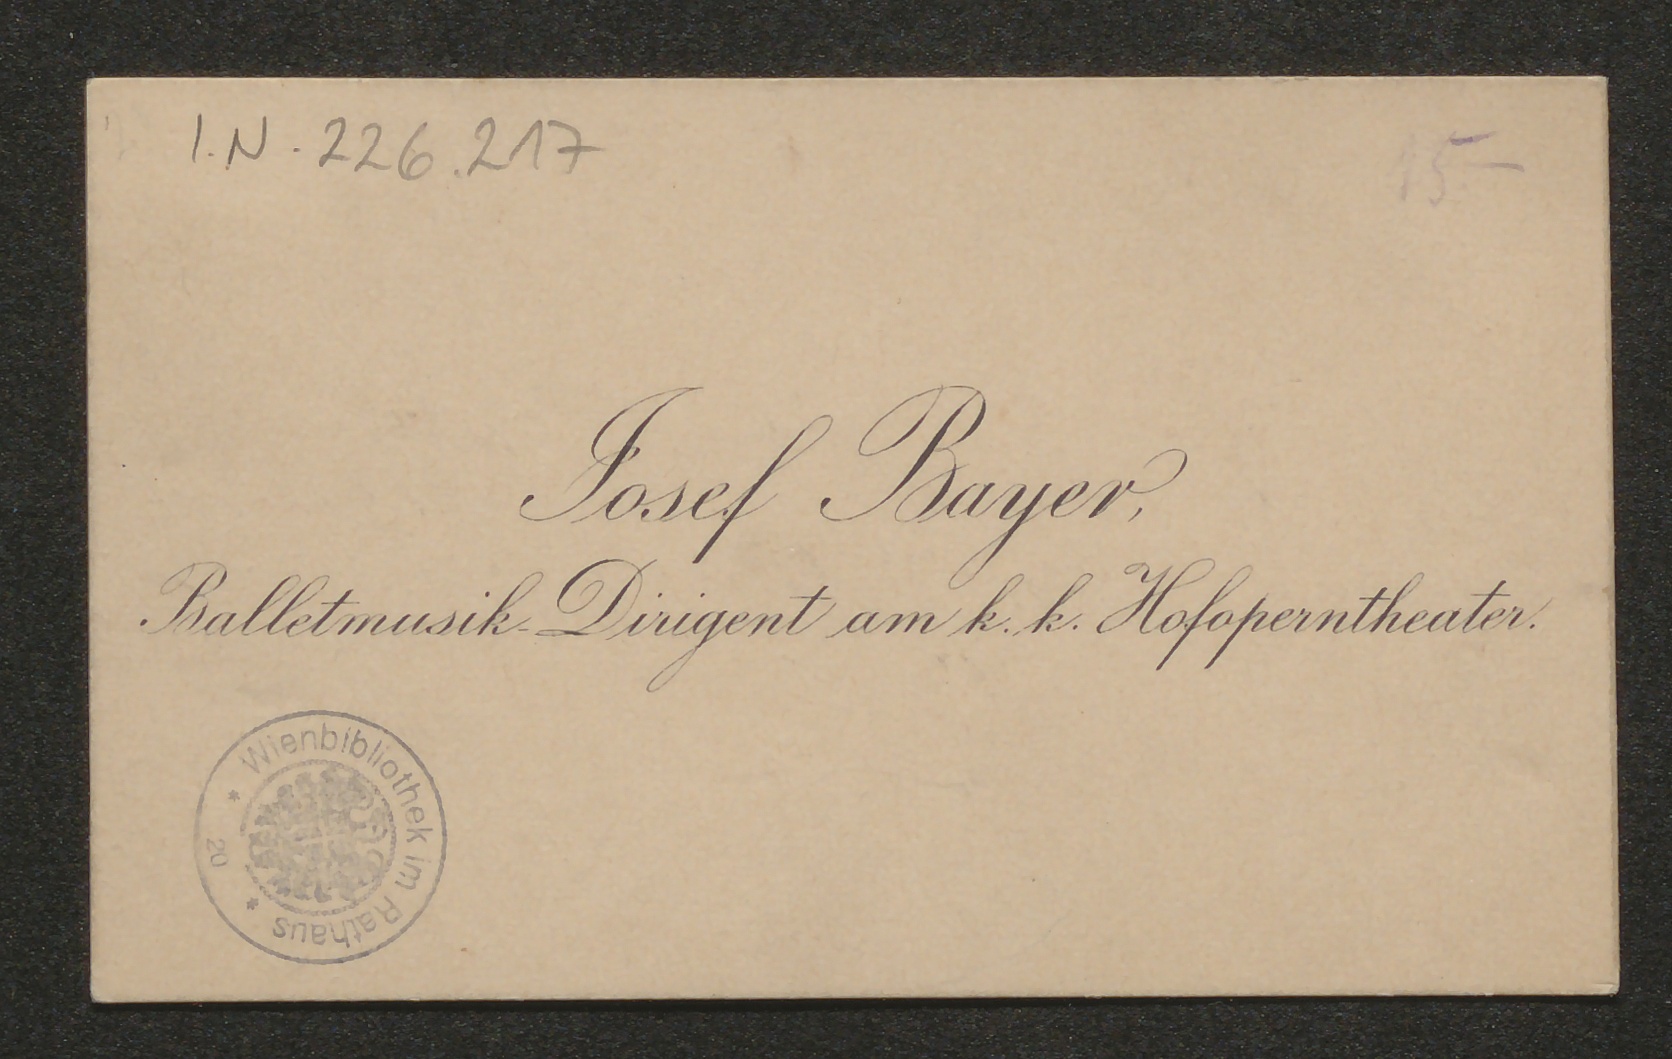 I.N. 226.217
15-
Josef Bayer,
Balletmusik-Dirigent am k. k. Hofoperntheater.
* Wienbibliothek im Rathaus *
20